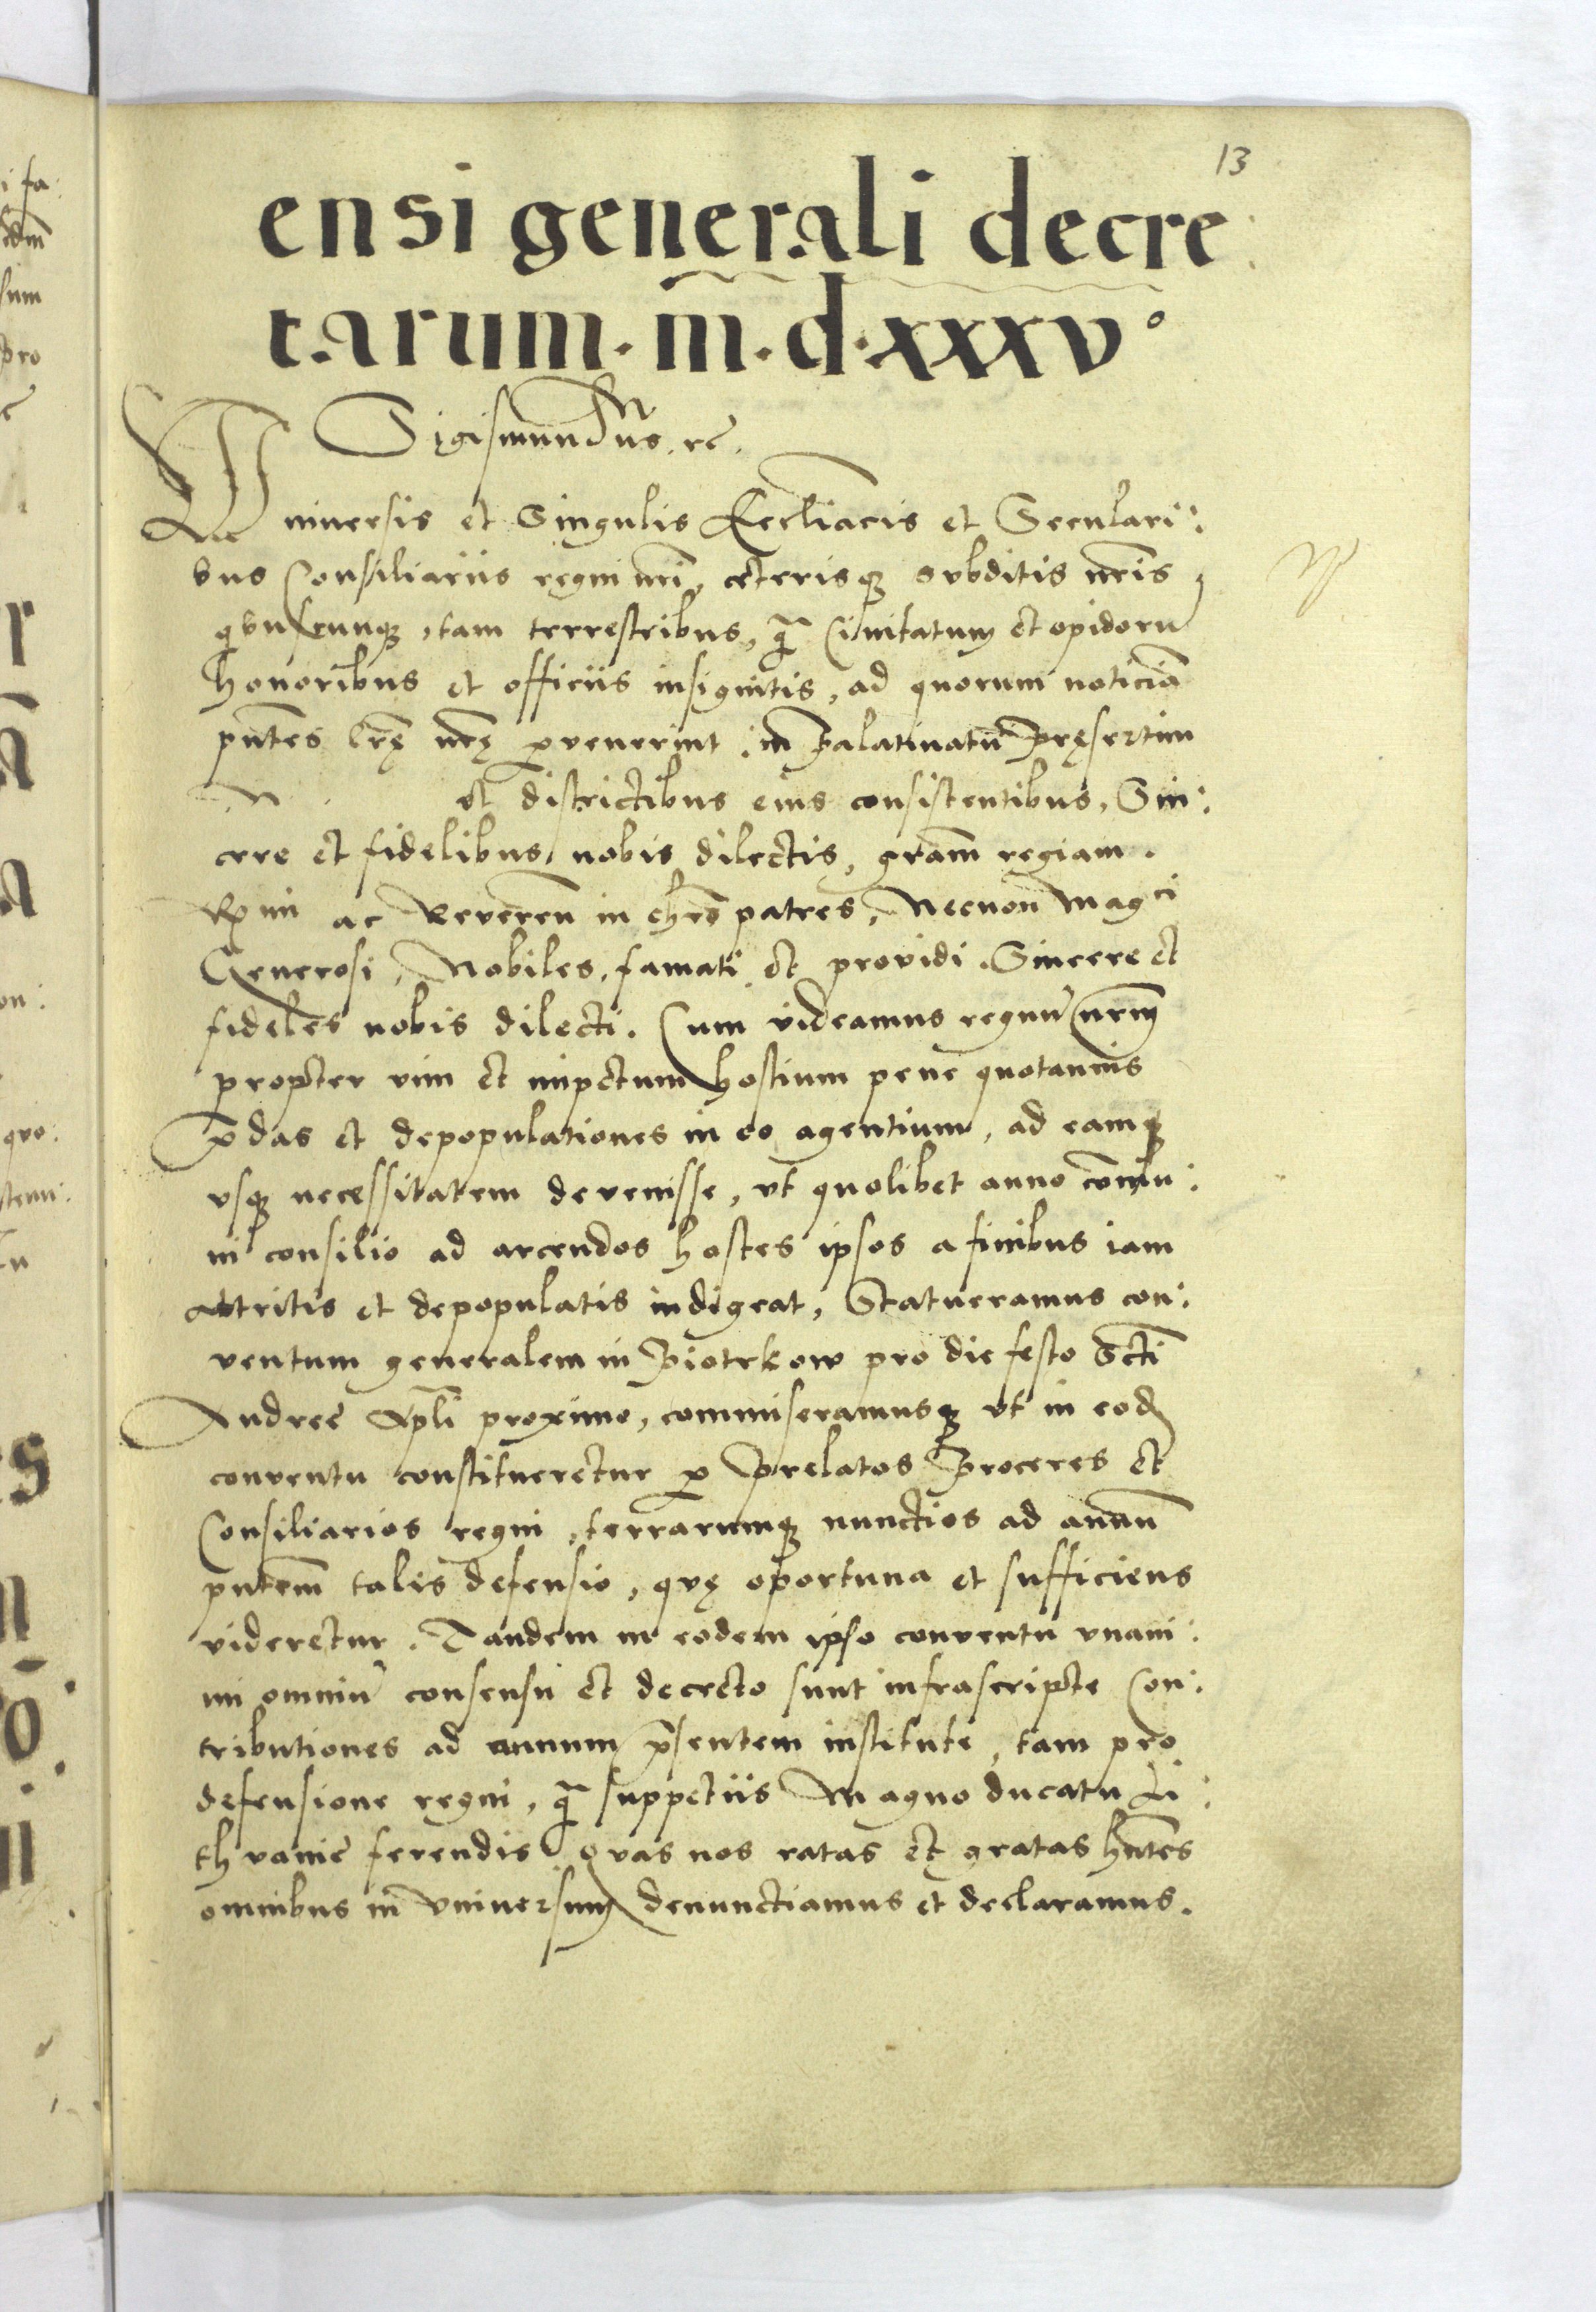 13
ensi generali decre
tarum. m̅.d.xxxv°
Sigismundus. rc.
Vniuersis et Singulis Eccl̄iacis et Seculari:
bus Consiliariis regni nr̄i, cęterisq; subditis nr̄is
qbuscunq;, tam terrestribus, q̄ Ciuitatum et opidorū
honoribus et officiis insignitis, ad quorum noticiā
pn̄tes lr̄ę nr̄ę peruenerint: in Palatinatu Pręsertim
N et districtibus eius consistentibus, Sin:
cere et fidelibus nobis dilectis, gram̄ regiam.
Rm̄i ac Reveren̄ in chr̄o patres, Necnon magci
Generosi, Nobiles, famati et providi. Sincere et
fideles nobis dilecti. Cum videamus regnū nrm̄
propter vim et impetum hostium pene quotannis
p̄das et depopulationes in eo agentium, ad eamq;
vsq; necessitatem devenisse, vt quolibet anno com̄u:
ni consilio ad arcendos hostes ipsos a finibus iam
attritis et depopulatis indigeat, Statueramus con:
ventum generalem in Piotrkow pro die festo Scti
Andreę Apl̄i proximo, commiseramusq; vt in eod
conventu constitueretur p Prelatos Proceres et
Consiliarios regni, terrarumq; nunctios ad annū
pn̄tem talis defensio, quę oportuna et sufficiens
videretur. Tandem in eodem ipso conventu vnani:
mi omniū consensu et decreto sunt infrascripte Con:
tributiones ad annum p̄sentem institute, tam pro
defensione regni, q̄ suppetiis Magno ducatu Li:
thvanię ferendis Quas nos ratas et gratas hn̄tes
omnibus in vniuersum denunctiamus et declaramus.